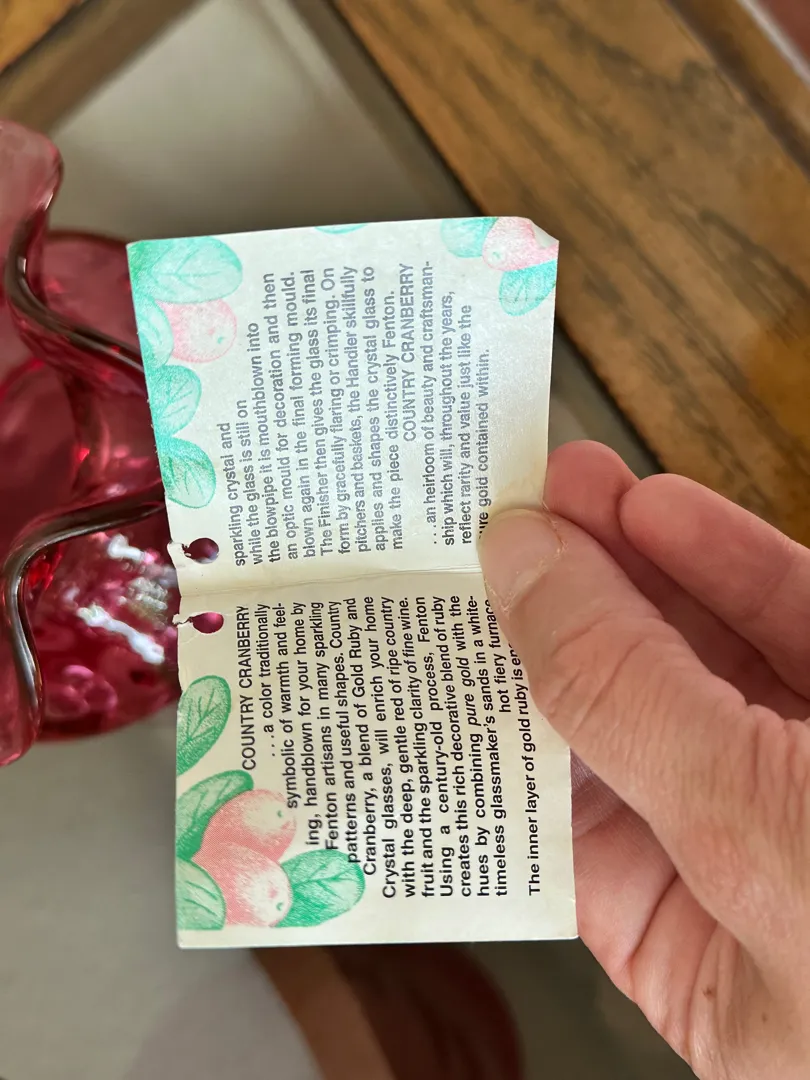 COUNTRY CRANBERRY
...a color traditionally
symbolic of warmth and feel-
ing, handblown for your home by
Fenton artisans in many sparkling
patterns and useful shapes. Country
Cranberry, a blend of Gold Ruby and
Crystal glasses, will enrich your home
with the deep, gentle red of ripe country
fruit and the sparkling clarity of fine wine.
Using a century-old process, Fenton
creates this rich decorative blend of ruby
hues by combining pure gold with the
timeless glassmaker's sands in a white-
hot fiery furnace
The inner layer of gold ruby is
sparkling crystal and
while the glass is still on
the blowpipe it is mouthblown into
an optic mould for decoration and then
blown again in the final forming mould.
The Finisher then gives the glass its final
form by gracefully flaring or crimping. On
pitchers and baskets, the Handler skillfully
applies and shapes the crystal glass to
make the piece distinctively Fenton.
COUNTRY CRANBERRY
...an heirloom of beauty and craftsman-
ship which will, throughout the years,
reflect rarity and value just like the
gold contained within.